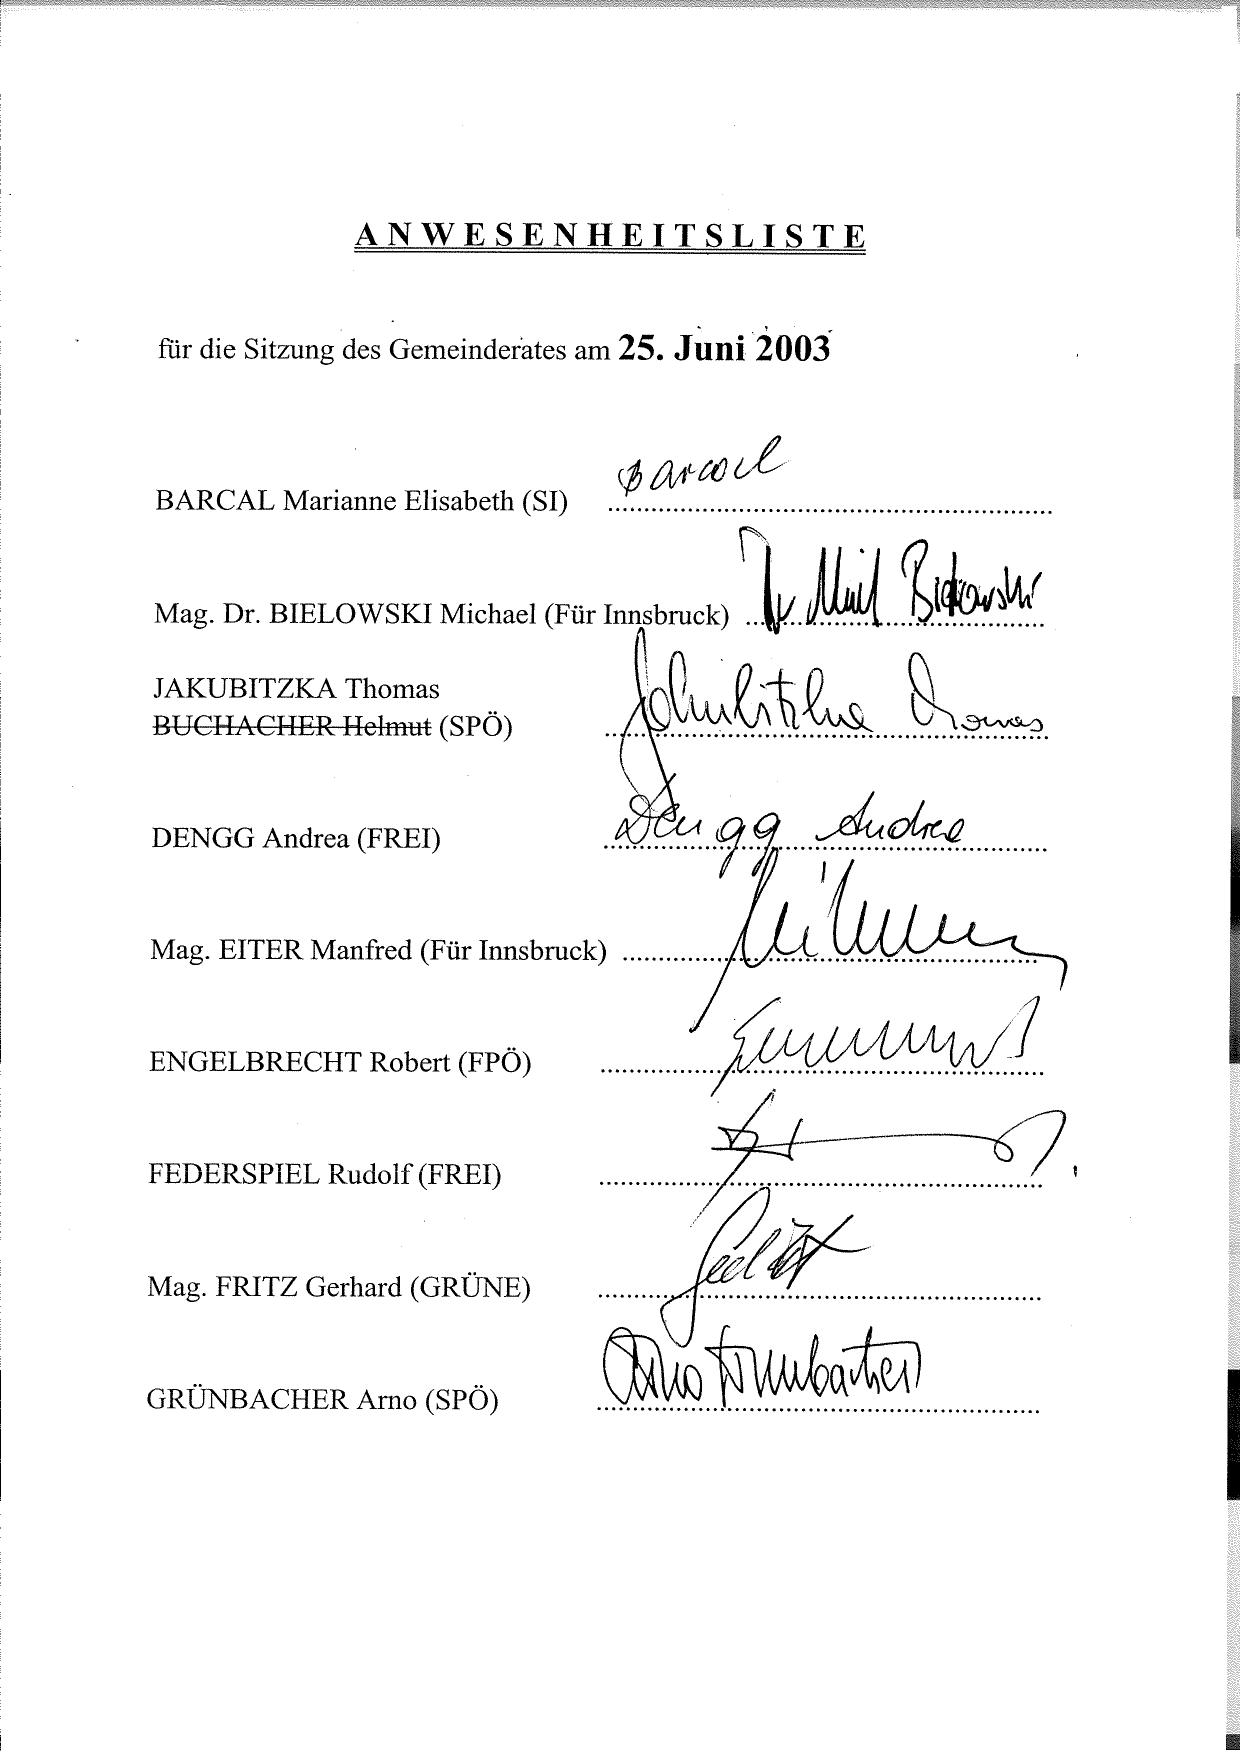 ANWESENHEITSLISTE
für die Sitzung des Gemeinderates am 25. Juni 2003
BARCAL Marianne Elisabeth (SI) Barcal
Mag. Dr. BIELOWSKI Michael (Für Innsbruck) Dr Bielowski
JAKUBITZKA Thomas
BUCHACHER Helmut (SPÖ) Jakubitzka Thomas
DENGG Andrea (FREI) Dengg Andrea
Mag. EITER Manfred (Für Innsbruck)
ENGELBRECHT Robert (FPÖ)
FEDERSPIEL Rudolf (FREI)
Mag. FRITZ Gerhard (GRÜNE)
GRÜNBACHER Arno (SPÖ) Arno Grünbacher